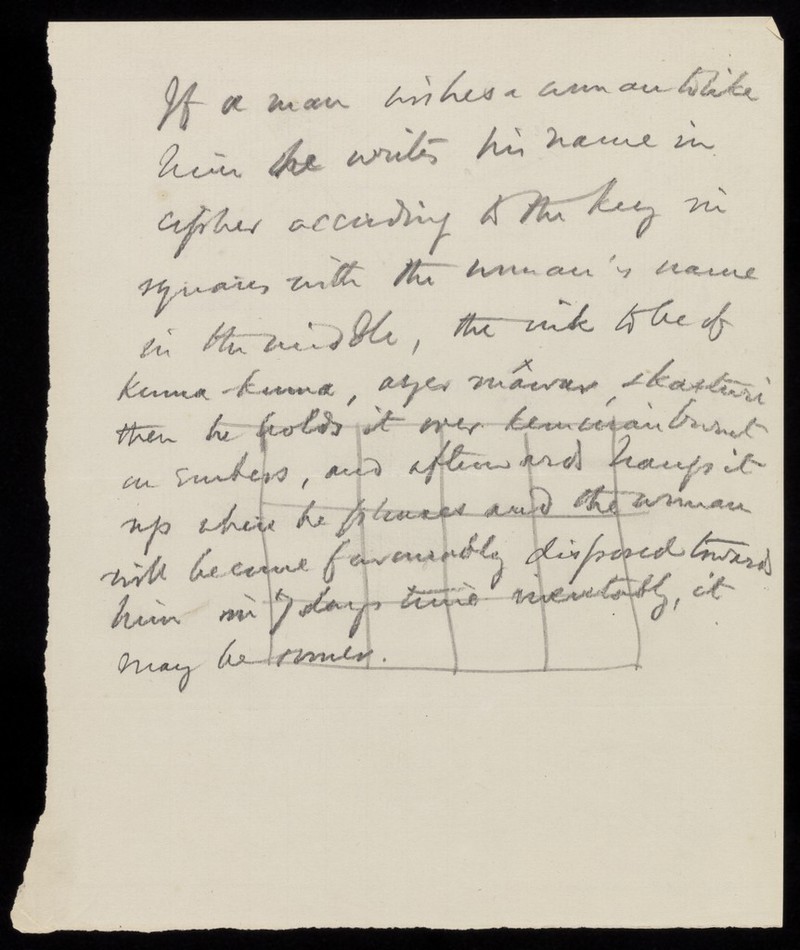 If a man wishes a woman to like
him he writes his name in
cipher according to the key in
squares with the woman's name
in the middle, the ink to be of
kuma kuma, ayer máwar, & kasturi
then he holds it over kemenian burnt
on embers, and afterwards hangs it
up where he pleases and the woman
will become favourably disposed towards
him in 7 days time inevitably, it
may be sooner.